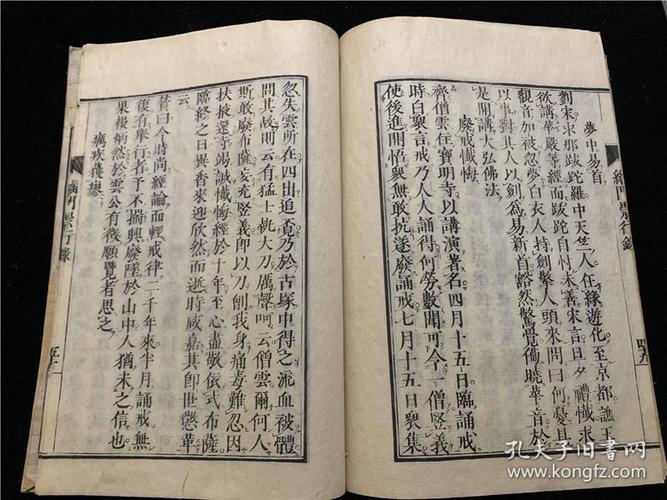 夢中易首
劉宋求那跋陀羅中天竺人任緣遊化至京都譙王
欲講華嚴等經而跋陀自忖未善宋言日夕禮懺求
加被忽夢白衣人持劍擎人頭來問曰何憂具
以事對其人以劍為易新首豁然驚覺備曉華音於
是開講大弘佛法
廢戒懺悔
齊僧雲住寶明寺以講演著名四月十五日臨誦戒
時白眾言戒乃人人誦得何勞數聞可令一僧豎義
使後進開悟眾無敢抗遂廢誦戒七月十五眾集
緇門崇行錄
四九
忽失雲所在四出追覓乃於古塚中得之流血被體
問其故則云有猛士執大刀厲聲呵云僧雲爾何人
斯敢廢布薩妄充豎義即以刀劊我身痛毒難忍因
扶掖還寺竭誠懺悔經於十年至心盡敬依式布薩
臨終之日異香來迎欣然而逝時咸嘉其即世懲革
云
贊曰今時尚經論而輕戒律二千年來半月誦戒無
復有舉行者予不揣興廢墜於山中人猶未之信也
果報炳然於雲公有後願覽者思之
癘疾獲瘳
緇門崇行錄
孔夫子旧书网
www.kongfz.com